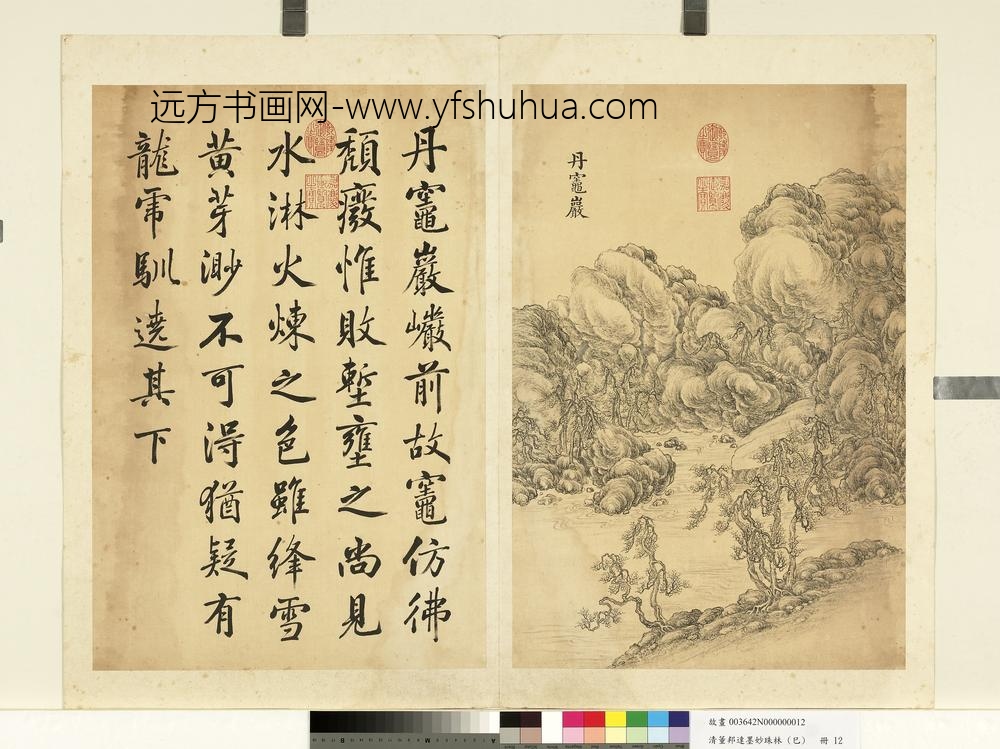 远方书画网-www.yfshuhua.com
丹竈巖
丹竈巖巖前故竈仿彿
頹癈惟敗塹壅之尚見
水淋火煉之色雖絳雪
黃芽渺不可得猶疑有
龍虎馴遶其下
故畫 003642N000000012
清董邦達墨妙珠林（巳） 冊 12